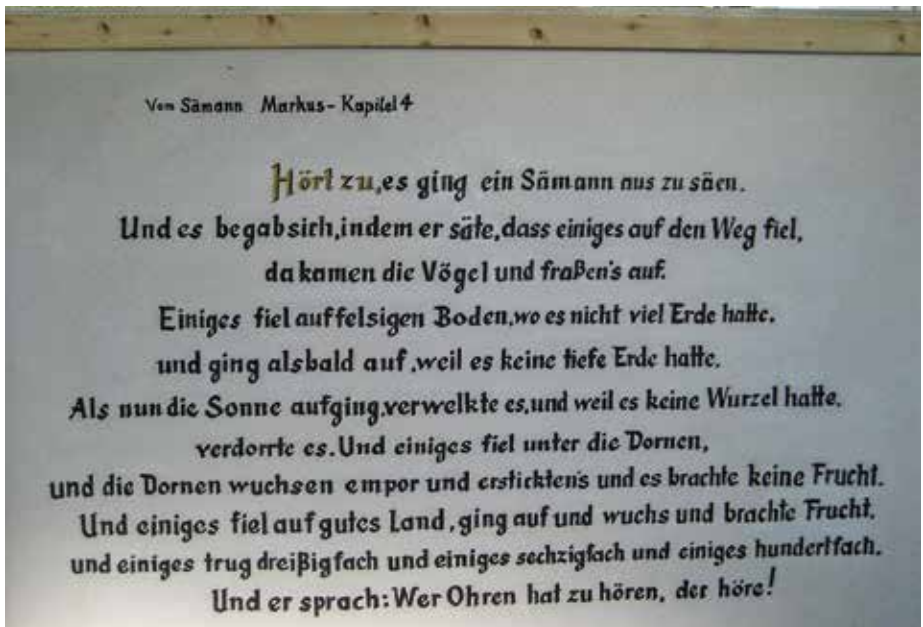 Vom Sämann Markus-Kapitel 4
Hört zu, es ging ein Sämann aus zu säen.
Und es begab sich, indem er säte, dass einiges auf den Weg fiel,
da kamen die Vögel und fraßen's auf.
Einiges fiel auf felsigen Boden, wo es nicht viel Erde hatte,
und ging alsbald auf, weil es keine tiefe Erde hatte.
Als nun die Sonne aufging, verwelkte es, und weil es keine Wurzel hatte,
verdorrte es. Und einiges fiel unter die Dornen,
und die Dornen wuchsen empor und erstickten's und es brachte keine Frucht.
Und einiges fiel auf gutes Land, ging auf und wuchs und brachte Frucht,
und einiges trug dreißigfach und einiges sechzigfach und einiges hundertfach.
Und er sprach: Wer Ohren hat zu hören, der höre!